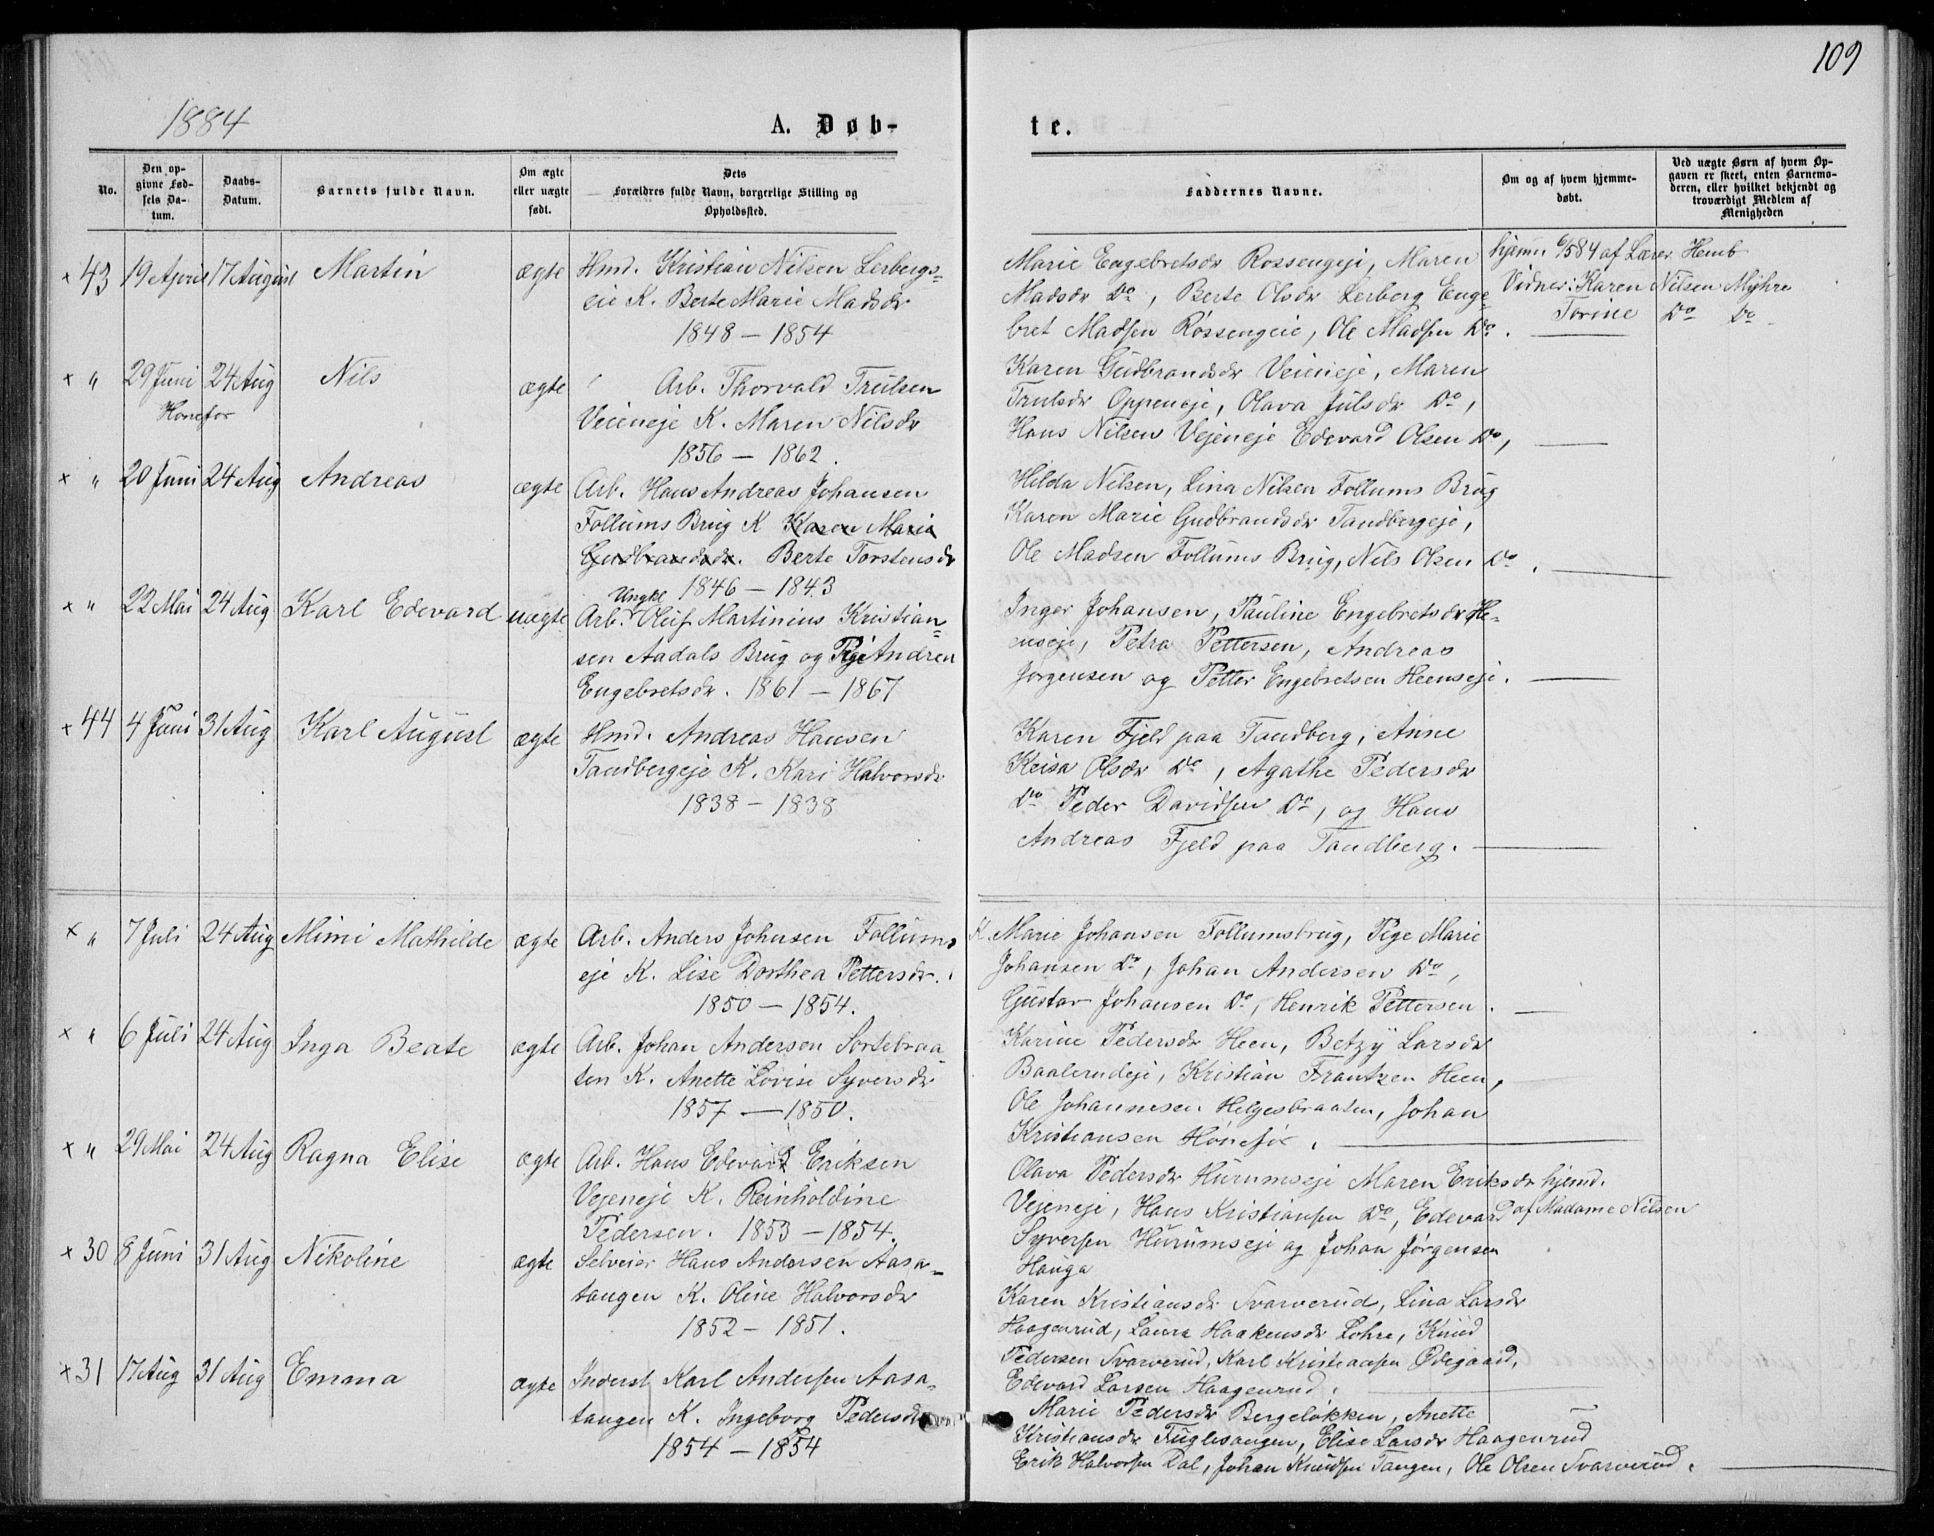 109
1884
A. Døb-
te.
No.
Den op-
givne Fød-
sels Da-
tum.
Daabs-
Datum.
Barnets fulde Navn.
Om ægte
eller uægte
født.
Dets
Forældres fulde Navn, borgerlige Stilling og
Opholdssted.
Faddernes Navne.
Om og af hvem hjemme-
døbt.
Ved uægte Børn af hvem Op-
gaven er skeet, enten Barnemo-
deren, eller hvilket bekjendt og
troværdigt Medlem af
Menigheden
× 43 19 April 17 August Martin ægte Hmd. Kristian Nilsen Lerbergs-
eie K. Berte Marie Madsdr
1848 - 1854
Marie Engebretsdr Rossengeje, Maren
Madsdr Do, Berte Olsdr Lerberg Enge-
bret Madsen Rossengeie, Ole Madsen Do.
hjem. 6/5 84 af Lærer Hemb
Vidner: Karen Nilsen Myhre
Torine Do Do
× " 29 Juni 24 Aug Nils ægte Arb. Thorvald Trulsen
Hønefos
Veieneje K. Maren Nilsdr
1856 - 1862.
Karen Gudbrandsdr Veieneje, Maren
Trulsdr Oppeneje, Olava Julsdr Do,
Hans Nilsen Vejeneje Edevard Olsen Do,
× " 20 Juni 24 Aug Andreas ægte Arb. Hans Andreas Johansen
Follums Brug K Karen Marie
Gudbrandsdr. Berte Torstensdr
1846 - 1843
Hilda Nilsen, Lina Nilsen Follums Brug
Karen Marie Gudbrandsdr Tandbergeje,
Ole Madsen Follums Brug, Nils Olsen Do.
× " 22 Mai 24 Aug Karl Edevard uægte Ungkl
Arb. Oluf Martinius Kristian-
sen Aadals Brug og Pige Andrea
Engebretsdr. 1861 - 1867
Inger Johansen, Pauline Engebretsdr He-
enseje, Petra Pettersen, Andreas
Jørgensen og Petter Engebretsen Heenseje.
× 44 4 Juni 31 Aug Karl August ægte Hmd. Andreas Hansen
Tandbergeje K. Kari Halvorsdr
1838 - 1838
Karen Fjeld paa Tandberg, Anne
Keisa Olsdr Do, Agathe Pedersdr
Do Peder Davidsen Do, og Hans
Andreas Fjeld paa Tandberg.
× " 7 Juli 24 Aug Mimi Mathilde ægte Arb. Anders Johnsen Follums
eje K. Lise Dorthea Pettersdr.
1850 - 1854.
K. Marie Johansen Follumsbrug, Pige Marie
Johansen Do, Johan Andersen Do,
Gustav Johansen Do, Henrik Pettersen.
× " 6 Juli 24 Aug Inga Beate ægte Arb. Johan Andersen Sortebraa
ten K. Anette Lovise Syversdr
1857 - 1850.
Karine Pedersdr Heen, Betzy Larsdr
Baalerudeje, Kristian Frantzen Heen,
Ole Johannesen Helgesbraaten, Johan
Kristiansen Hønefos.
× " 29 Mai 24 Aug Ragna Elise ægte Arb. Hans Edevard Eriksen
Vejeneje K. Reinholdine
Pedersen. 1853 - 1854.
Olava Pedersdr Hurumseje Maren Eriksdr
Vejeneje, Hans Kristiansen Do, Edevard
Syversen Hurumseje og Johan Jørgensen
Hauga
hjemd.
af Madame Nilsen
× 30 8 Juni 31 Aug Nikoline ægte Selveier Hans Andersen Aasa-
tangen K. Oline Halvorsdr
1852 - 1851.
Karen Kristiansdr Svarverud, Lina Larsdr
Haagenrud, Laura Haakensdr Lohre, Knud
Pedersen Svarverud, Karl Kristiansen Ødegaard,
Edevard Larsen Haagenrud.
× 31 17 Aug 31 Aug Emma ægte Inderst Karl Andersen Aasa-
tangen K. Ingeborg Pedersdr
1854 - 1854
Marie Pedersdr Bergeløkken, Anette
Kristiansdr Fuglesangen, Elise Larsdr Haagenrud
Erik Halvorsen Dal, Johan Knudsen Tangen, Ole Olsen Svarverud.